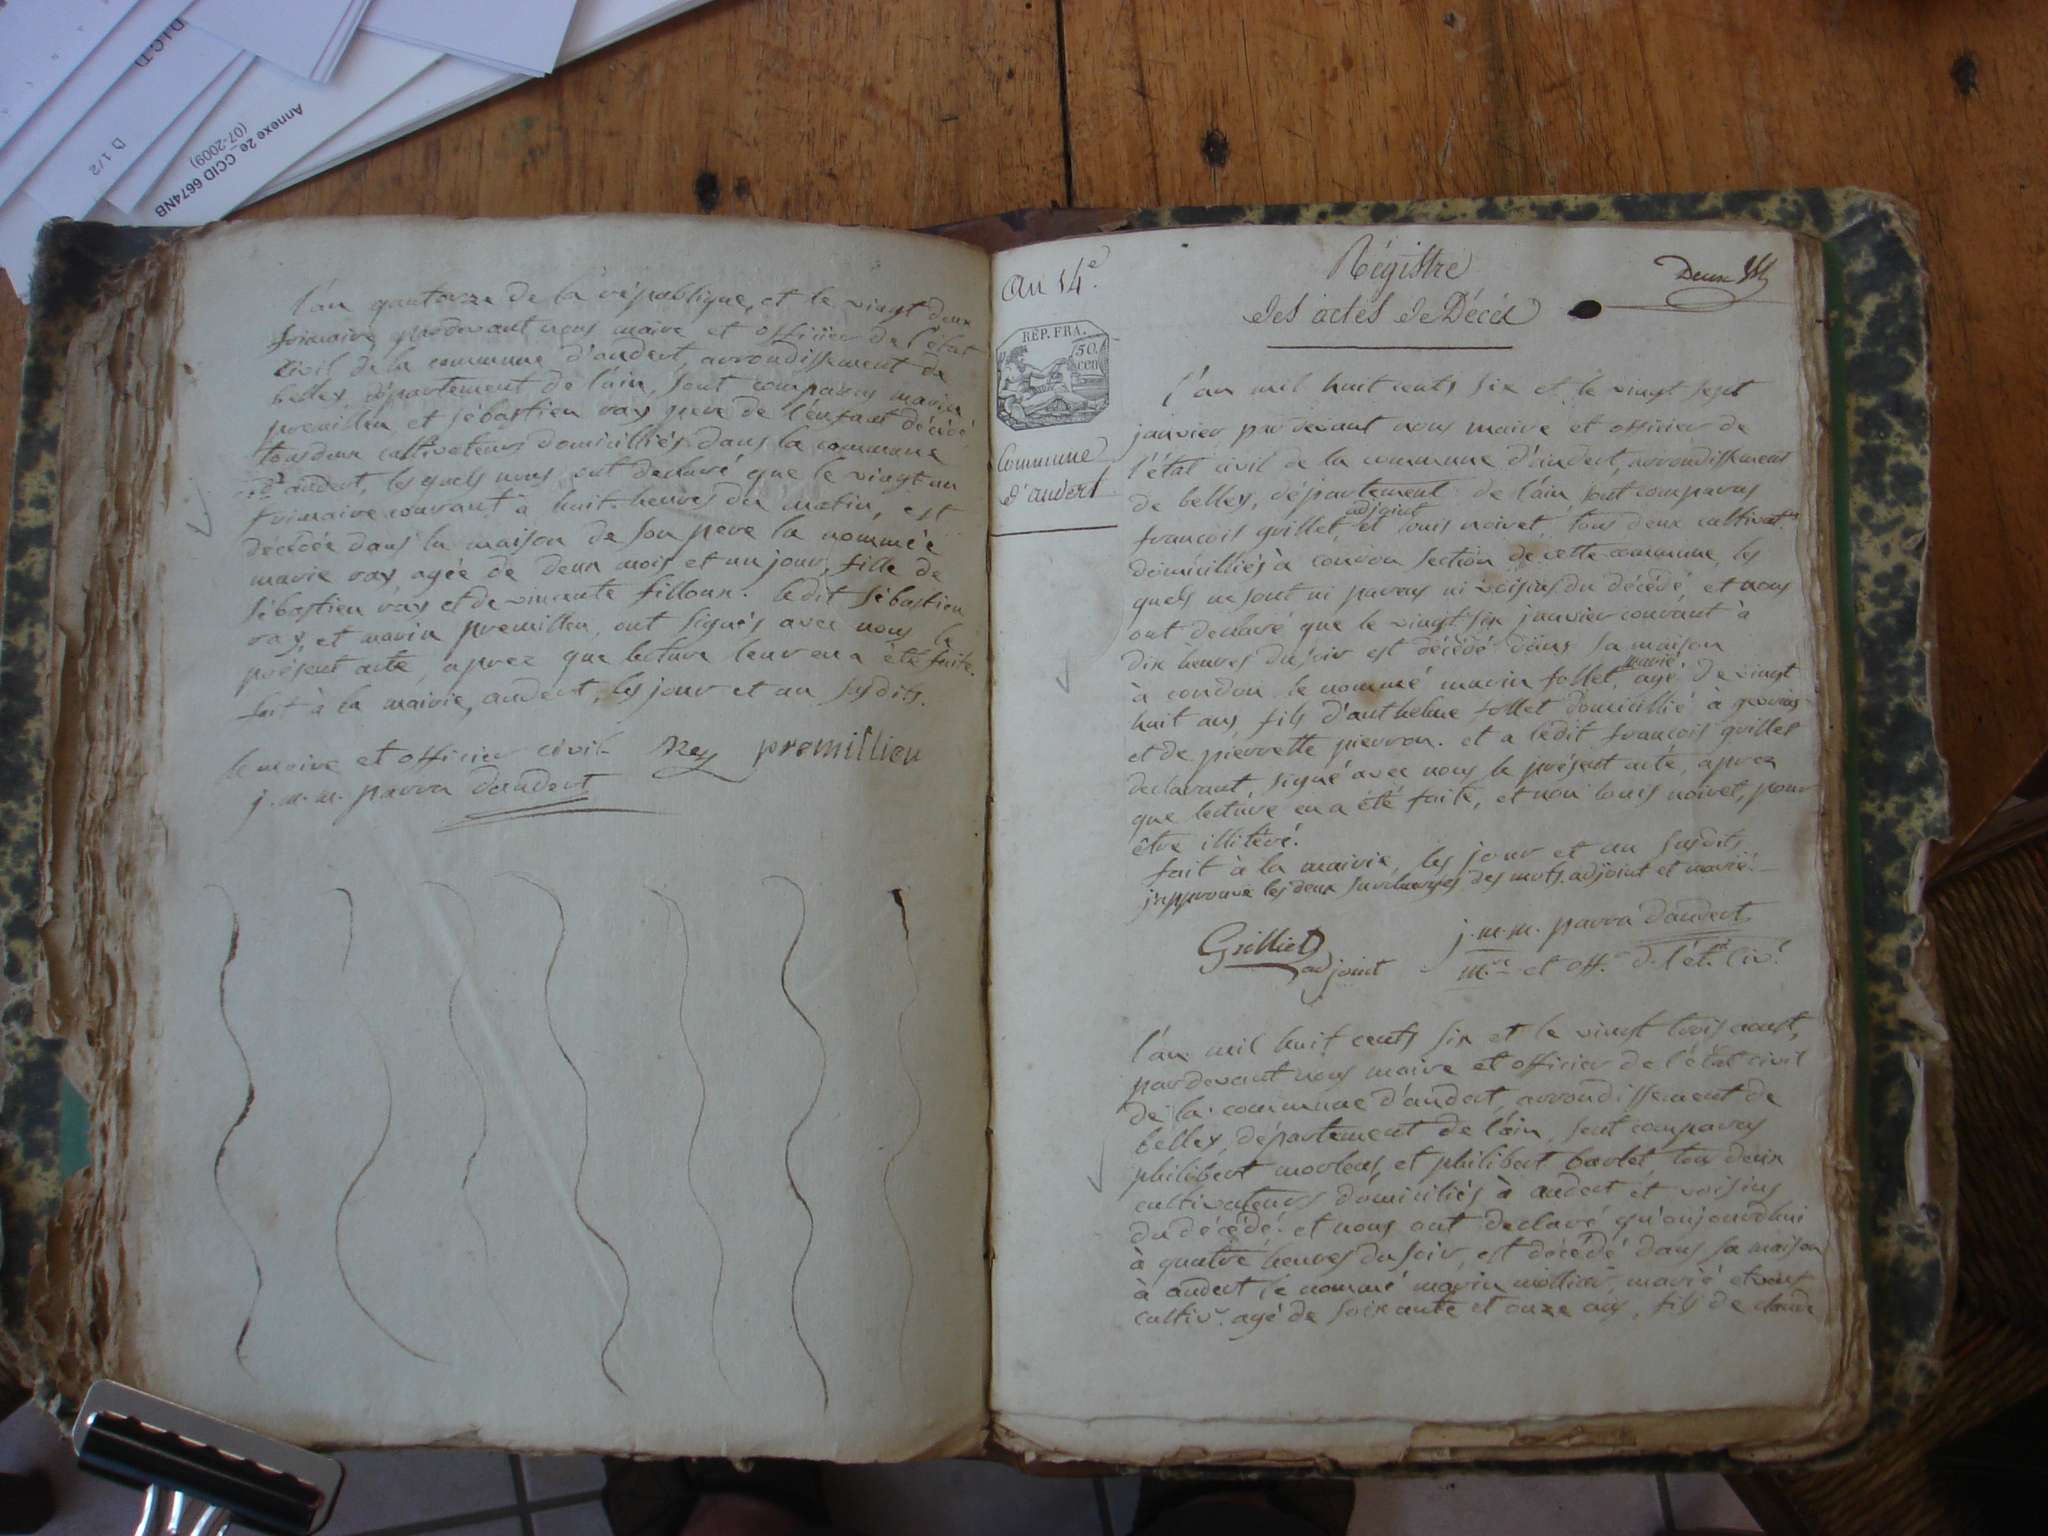 D.I.C.T)
D 1/2
Annexe 2e_CCID 6674NB
(07-2009)
l'an quatorze de la république, et le vingt deux
frimaire pardevant nous maire et officier de l'état
civil de la commune d'andert, arrondissement de
belley département de l'ain, sont comparus marin
premillieu, et sébastien ray pere de l'enfant décédé,
tous deux cultivateurs domiciliés dans la commune
d'andert, les quels nous ont declaré que le vingt un
frimaire courant à huit heures du matin, est
décédée dans la maison de son pere la nommée
marie ray agée de deux mois et un jour, fille de
sébastien ray et de vincente filloux. ledit sébastien
ray, et marin premillieu, ont signés avec nous le
présent acte, aprez que lecture leur en a été faite.
fait à la mairie, andert, les jour et an susdits.
le maire et officier civil Rey premillieu
j. m. m. parra d'andert
an 14e.
RÉP. FRA.
50
cen
Commune
d'andert
Régistre
des actes de Décès
Deux
l'an mil huit cents six et le vingt sept
janvier, par devant nous maire et officier de
l'état civil de la commune d'andert, arrondissement
de belley, département de l'ain, sont comparus
francois grillet, adjoint et louis noivet, tous deux cultivat.rs
domiciliés à condon section de cette commune, les
quels ne sont ni parens ni voisins du décédé, et nous
ont declaré que le vingt six janvier courant à
dix heures du soir est décédé dans sa maison
à condon le nommé marin follet, marié, agé de vingt
huit ans, fils d'anthelme follet domicilié à
et de pierrette pierron. et a ledit francois grillet
declarant, signé avec nous le présent acte, aprez
que lecture en a été faite, et non louis noivet, pour
être illitéré.
fait à la mairie, les jour et an susdits
j'approuve les deux surcharges des mots adjoint et marié.
Grilliet adjoint
j. m. m. parra d'andert
m.re et off.r d. l'ét.at civ.l
l'an mil huit cents six et le vingt trois aoust,
pardevant nous maire et officier de l'état civil
de la commune d'andert, arrondissement de
belley, département de l'ain, sont comparus
philibert et philibert barlet, tou deux
cultivateurs domiciliés à andert et voisins
du décédé. et nous ont declaré qu'aujourdhui
à quatre heures du soir, est décédé dans sa maison
à andert le nommé marin marié et
cultiv.r agé de soixante et onze ans, fils de claude